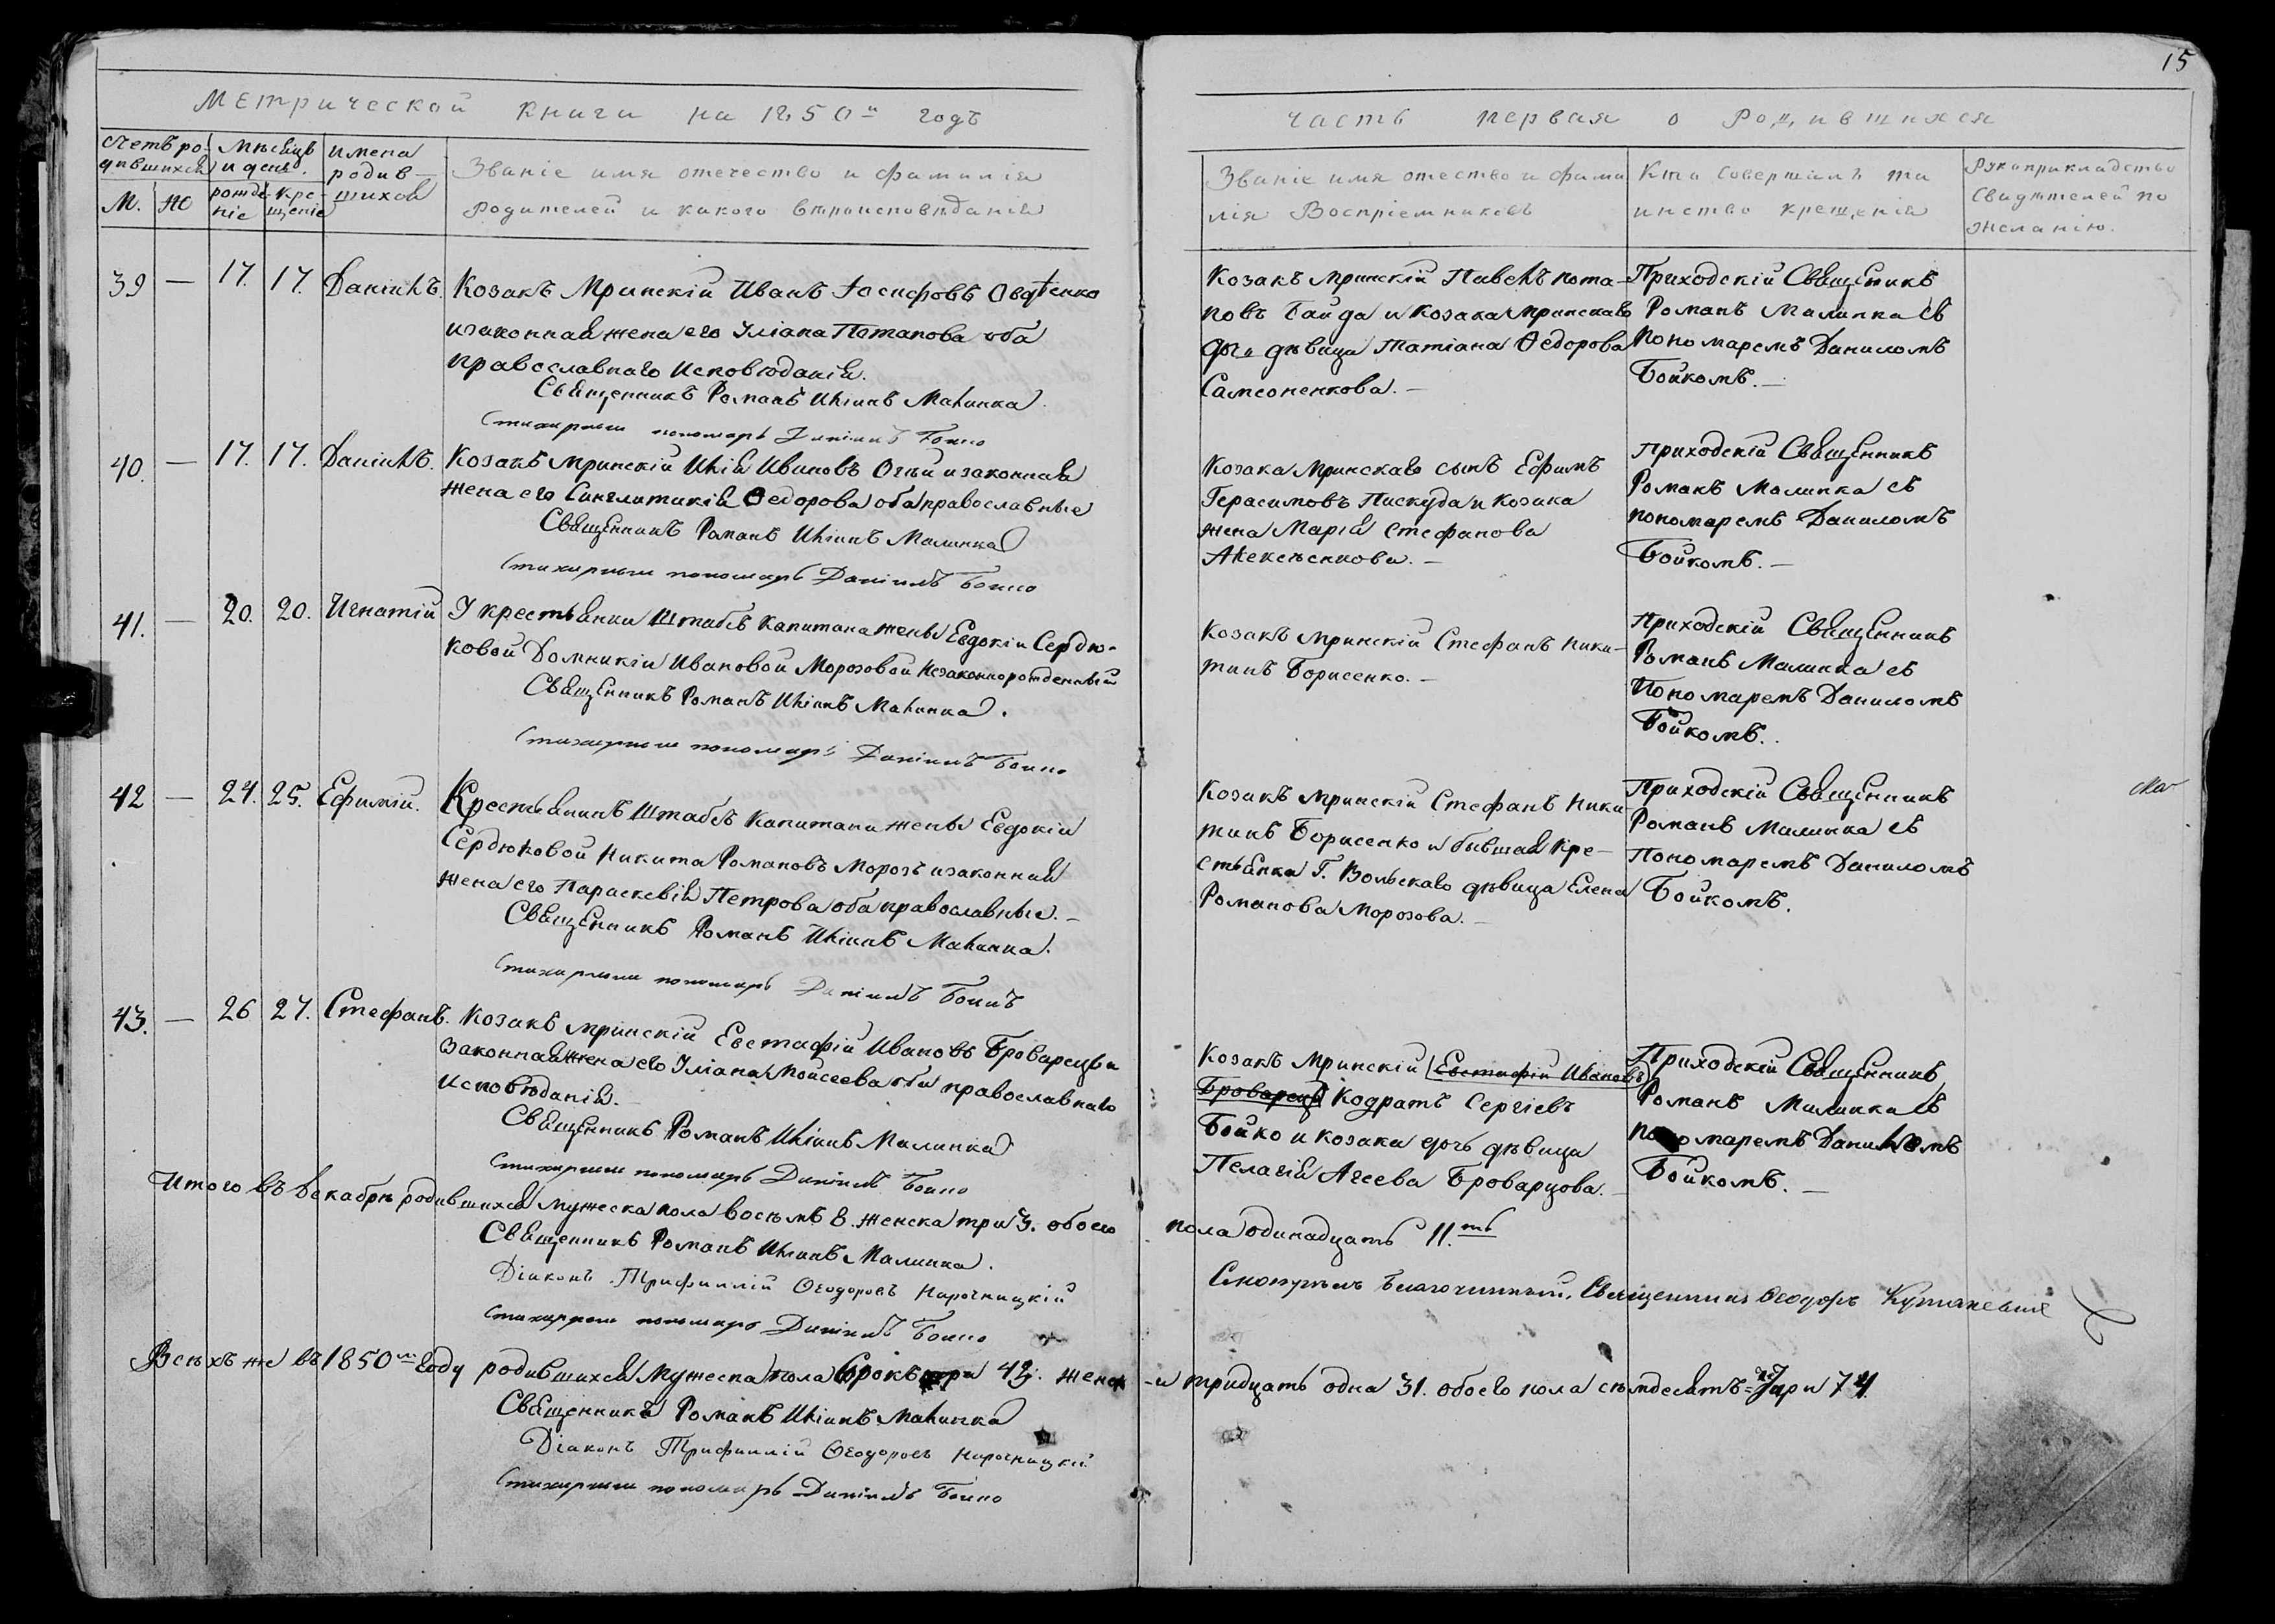 15
Метрической книги на 1850й годъ
Часть первая о Родившихся
Счетъ ро-
дившихся
М. Ж
Мѣсяцъ
и день.
рожде-
ніе
Кре-
щеніе
Имена
родив-
шихся
Званіе имя отечество и фамилія
Родителей и какого вѣроисповѣданія
Званіе имя отество и фами
лія Воспріемниковъ
Кто Совершилъ та
инство крещенія
Рукоприкладство
Свидѣтелей по
желанію.
39 — 17. 17. Даніилъ.
Козакъ Мринскій Иванъ Іосифовъ Овдѣенко
и законная жена его Уліана Потапова оба
православнаго Исповѣданія.
Священникъ Романъ Иліинъ Малинка.
Стихарный пономарь Даніилъ Бойко
Козакъ Мринскій Павелъ Пота-
повъ Байда и Козака Мринскаго
дочь дѣвица Татіана Ѳедорова
Самсоненкова. —
Приходскій Священникъ
Романъ Малинка съ
Пономаремъ Даниломъ
Бойкомъ. —
40. — 17. 17. Даніилъ.
Козакъ Мринскій Илія Ивановъ Огій и законная
жена его Синглитикія Ѳедорова оба православные
Священникъ Романъ Иліинъ Малинка
Стихарный пономарь Даніилъ Бойко
Козака Мринскаго сынъ Ефимъ
Герасимовъ Пискуда и Козака
жена Марія Стефанова
Алексѣенкова. —
Приходскій Священникъ
Романъ Малинка съ
пономаремъ Даниломъ
Бойкомъ. —
41. — 20. 20. Игнатій
У крестьянки Штабсъ Капитана жены Евдокіи Сердю-
ковой Домникіи Ивановой Морозовой незаконнорожденный
Священникъ Романъ Иліинъ Малинка.
Стихарный пономарь Даніилъ Бойко
Козакъ Мринскій Стефанъ Ники-
тинъ Борисенко. —
Приходскій Священникъ
Романъ Малинка съ
Пономаремъ Даниломъ
Бойкомъ.
42 — 24. 25. Ефимій.
Крестьянинъ Штабсъ Капитана жены Евдокіи
Сердюковой Никита Романовъ Морозъ и законная
жена его Параскевія Петрова оба православные. —
Священникъ Романъ Иліинъ Малинка.
Стихарный пономарь Даніилъ Бойкъ
Козакъ Мринскій Стефанъ Ники
тинъ Борисенко и бывшая Кре-
стьянка Г. Вольскаго дѣвица Елена
Романова Морозова. —
Приходскій Священникъ
Романъ Малинка съ
Пономаремъ Даниломъ
Бойкомъ.
43. — 26 27. Стефанъ.
Козакъ Мринскій Евстафій Ивановъ Броварецъ и
законная жена его Уліана Мойсеева оба православнаго
Исповѣданія. —
Священникъ Романъ Иліинъ Малинка
Стихарный пономарь Даніилъ Бойко
Козакъ Мринскій (Евстафій Ивановъ
Броварецъ) Кодратъ Сергіевъ
Бойко и козака дочь дѣвица
Пелагія Агеева Броварцова. —
Приходскій Священникъ
Романъ Малинка съ
Пономаремъ Даниломъ
Бойкомъ. —
Итого въ декабрѣ родившихся мужеска пола восѣмъ 8. женска три 3. обоего пола одинадцать 11.ть
Священникъ Романъ Иліинъ Малинка.
Діаконъ Трифиллій Ѳеодоровъ Нарочницкій
Стихарный пономарь Даніилъ Бойко
Благочинный, Священникъ Ѳеодоръ
Всѣхъ же въ 1850м году родившихся мужеска пола сорокъ три 43. женск-и тридцать одна 31. обоего пола сѣмдесятъ 74.
Священникъ Романъ Иліинъ Малинка
Діаконъ Трифиллій Ѳеодоровъ Нарочницкій
Стихарный пономарь Даніилъ Бойко